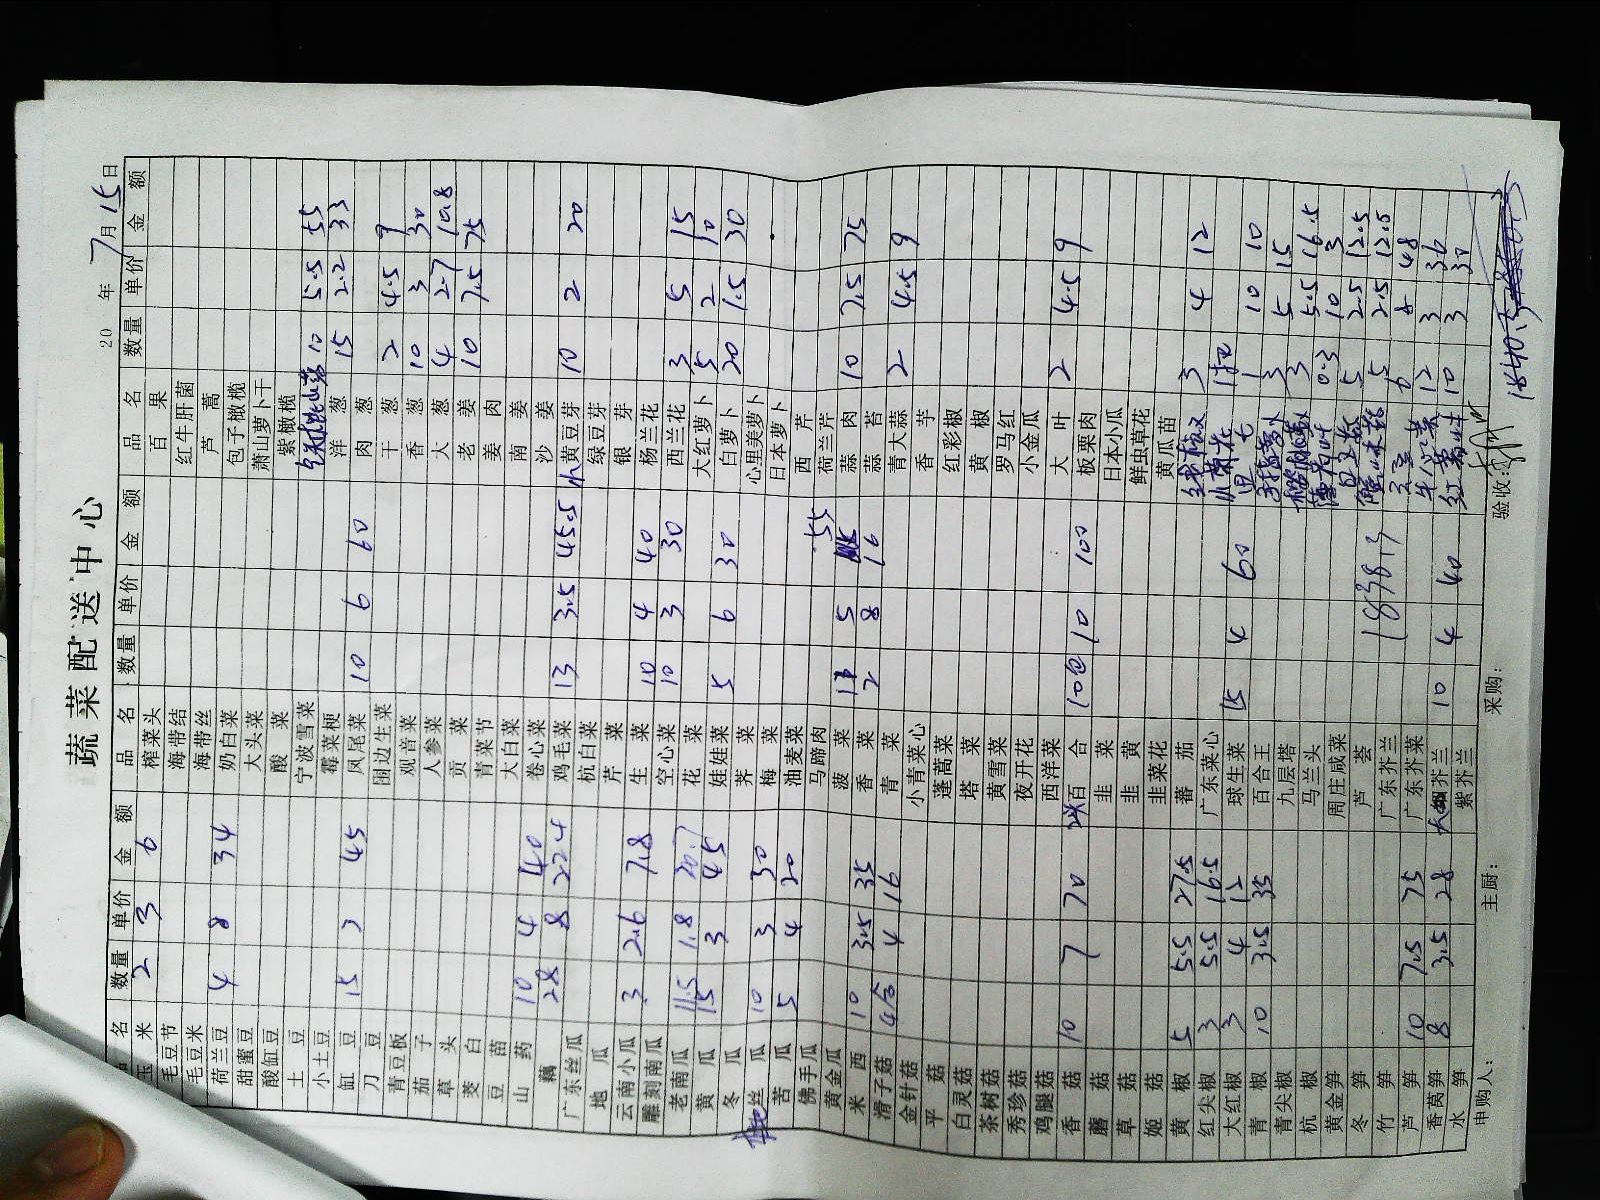 蔬菜配送中心
20 年 7月15日
品名 数量 单价 金额 品名 数量 单价 金额 品名 数量 单价 金额
玉米 2 3 6 榨菜头 百果
毛豆节 海带结 红牛肝菌
毛豆米 海带丝 芦蒿
荷兰豆 4 8 34 奶白菜 包子橄榄
甜蜜豆 大头菜 萧山萝卜干
酸缸豆 酸菜 紫橄榄
土豆 宁波雪菜 10 5.5 55
小土豆 霉菜梗 洋葱 15 2.2 33
缸豆 15 3 45 凤尾菜 10 6 60 肉葱
刀豆 围边生菜 干葱 2 4.5 9
青豆板 观音菜 香葱 10 3 30
茄子 人参菜 大葱 4 2.7 10.8
草头 贡菜 老姜 10 7.5 75
茭白 青菜节 姜肉
豆苗 大白菜 南姜
山药 10 4 40 卷心菜 沙姜
藕 28 8 224 鸡毛菜 13 3.5 45.5 小黄豆芽 10 2 20
广东丝瓜 杭白菜 绿豆芽
地瓜 芹菜 银芽
云南小瓜 3 2.6 7.8 生菜 10 4 40 杨兰花
雕刻南瓜 空心菜 10 3 30 西兰花 3 5 15
老南瓜 11.5 1.8 20.7 花菜 大红萝卜 5 2 10
黄瓜 15 3 45 娃娃菜 5 6 30 白萝卜 20 1.5 30
冬瓜 荠菜 心里美萝卜
丝瓜 10 3 30 梅菜 日本萝卜
苦瓜 5 4 20 油麦菜
佛手瓜 马蹄肉 西芹
黄金瓜 菠菜 11 5 55 荷兰芹
米西 10 3.5 35 香菜 2 8 16 蒜肉 10 7.5 75
滑子菇 4合 4 16 青菜 蒜苔
金针菇 小青菜心 青大蒜 2 4.5 9
平菇 蓬蒿菜 香芋
白灵菇 塔菜 红彩椒
茶树菇 黄雪菜 黄椒
秀珍菇 夜开花 罗马红
鸡腿菇 西洋菜 小金瓜
香菇 10 7 70 百合 10包 10 100 大叶 2 4.5 9
蘑菇 韭菜 板栗肉
草菇 韭黄 日本小瓜
姬菇 韭菜花 鲜虫草花
黄椒 5 5.5 27.5 蕃茄 黄瓜苗
红尖椒 3 5.5 16.5 广东菜心 3 4 12
大红椒 3 4 12 球生菜 15 4 60
青椒 10 3.5 35 百合王 1 10 10
青尖椒 九层塔 3 5 15
杭椒 马兰头 3 5.5 16.5
黄金笋 周庄咸菜 薄荷叶 0.3 10 3
冬笋 芦荟 5 2.5 12.5
竹笋 广东芥兰 蟹味菇 5 2.5 12.5
芦笋 10 7.5 75 广东芥菜 6 8 48
香莴笋 8 3.5 28 芥兰 10 4 40 12 3 36
水笋 紫芥兰 10 3 30
1838.3
申购人： 主厨： 采购： 验收：